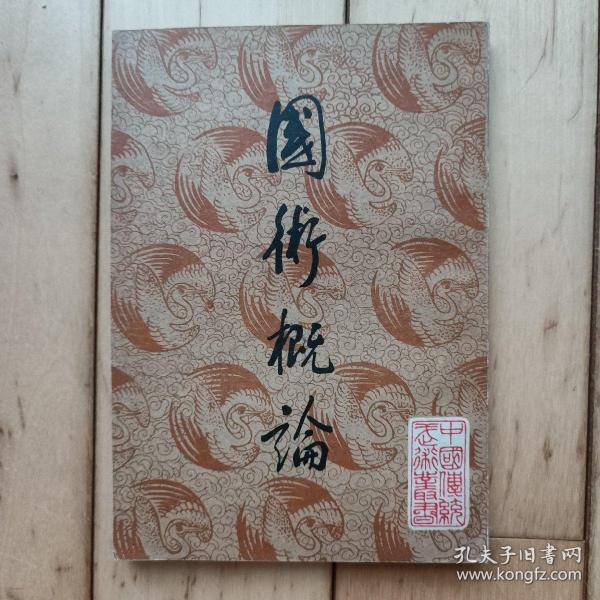 國術概論
中國傳統
武術叢書
孔夫子旧书网
www.kongfz.com